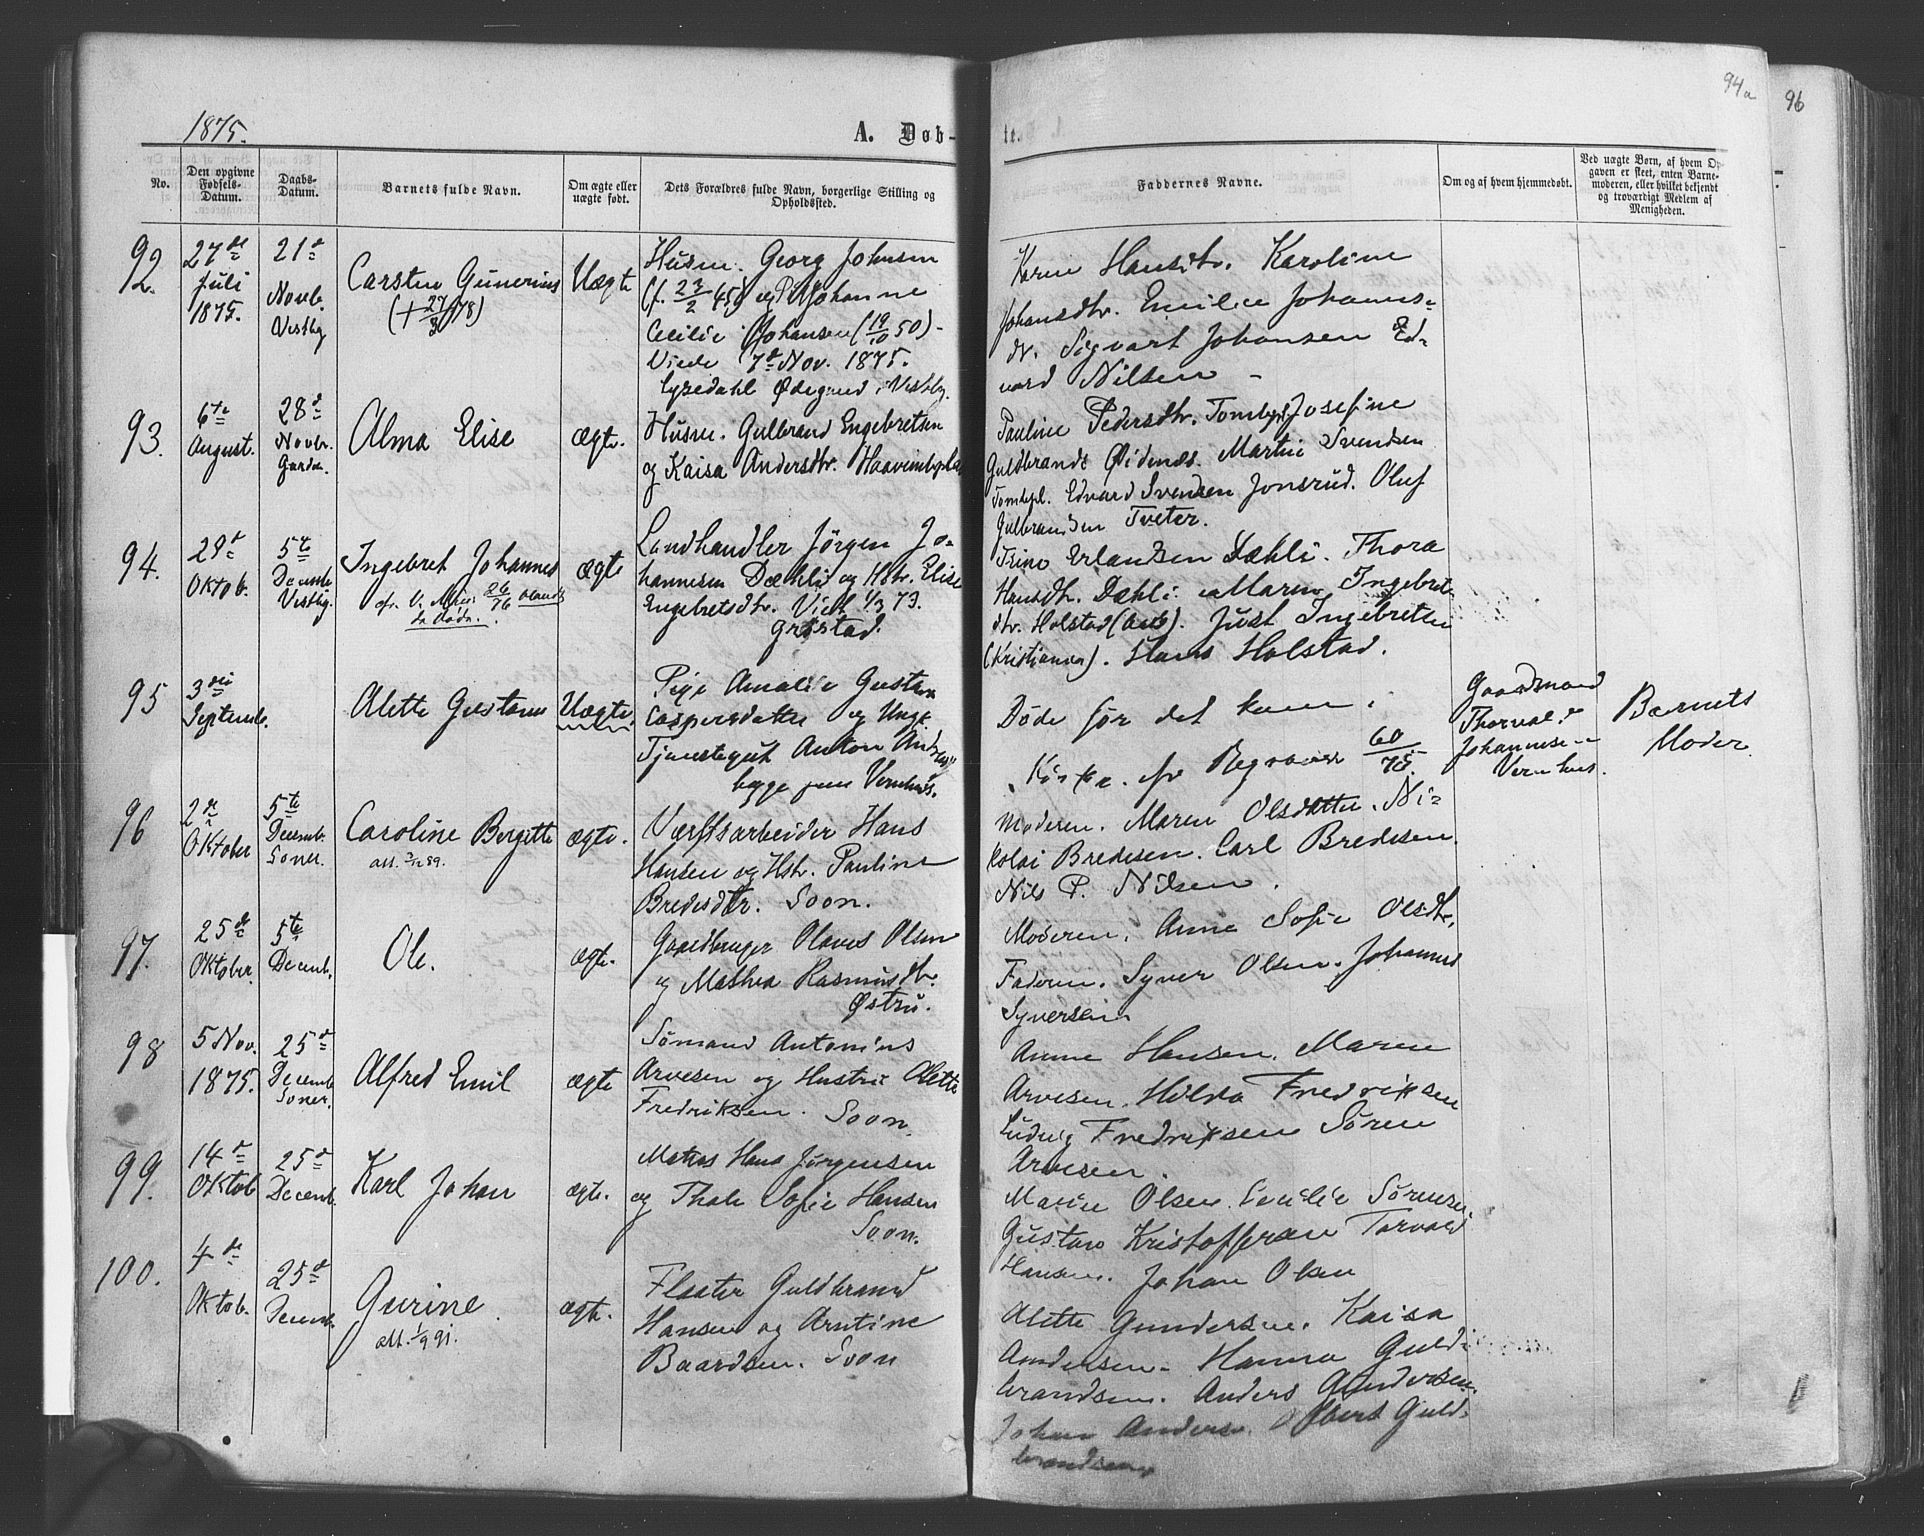 1875.
A. Døb-
te.
94a
96
No.
Den opgivne Fødsels-Datum.
Daabs-Datum.
Barnets fulde Navn.
Om ægte eller uægte født.
Dets Forældres fulde Navn, borgerlige Stilling og Opholdssted.
Faddernes Navne.
Om og af hvem hjemmedøbt.
Ved uægte Børn, af hvem Opgaven er skeet, enten Barnemoderen, eller hvilket bekjendt og troværdigt Medlem af Menigheden.
92.
27de
Juli
1875.
21de
Novb.
Vestby
Carsten Gunerius
(+ 27/3 78)
Uægte
Husm. Georg Johnsen
(f. 23/2 45) og P. Johanne
Cecilie Johansen (19/10 50) -
Viede 7de Nov. 1875.
Ødegaard i Vestby.
Karen Hansdtr. Karoline
Johansdtr. Emilie Johannes-
dtr. Sigvart Johansen Ed-
vard Nilsen -
93.
6te
August.
28de
Novbr.
Garder
Alma Elise
ægte.
Husm. Gulbrand Engebretsen
og Kaisa Andersdtr. Haavimbypl.
Pauline Pedersdtr. Tombypl. Josefine
Guldbrands Svendsen
Tombypl. Edvard Svendsen Jonsrud. Oluf
Gulbrandsen Tveter.
94.
29de
Oktob.
5te
Decemb.
Vestby.
Ingebret Johannes
ægte
Landhandler Jørgen Jo-
hannesen Dæhli og Hstr. Elise
Engebretsdtr. Viet 1/3 73.
Grøstad.
Trine Erlandsen Dæhli. Thora
Hansdtr. Dæhli. Maren Ingebrets-
dtr. Holstad (Aas). Just Ingebretsen
(Kristiania). Hans Holstad.
95
3die
Septemb.
Alette Gustava
Uægte.
Pige Amalie Gustava
Caspersdatter og Ungk.
Tjenestegut Anton Andreas
begge paa Vernhus.
Døde før det kom i
Kirke. cfr Begravne 60/75.
Gaardmand
Thorvald
Johannesen
Vernhus.
Barnets
Moder
96
2de
Oktober
5te
Decemb.
Soner.
Caroline Bergitte
att. 3/12 89.
ægte.
Værftsarbeider Hans
Hansen og Hstr. Pauline
Bredesdtr. Soon.
Moderen. Maren Olsdatter. Ni-
kolai Bredesen. Carl Bredesen.
Nils P. Nilsen.
97.
25de
Oktober.
5te
Decemb.
Ole.
ægte.
Gaardbruger Olaves Olsen
og Mathea Rasmusdtr.
Østru.
Moderen. Anne Sofie Olsdtr.
Faderen. Syver Olsen. Johannes
Syversen.
98
5 Nov.
1875.
25de
Decemb.
Soner.
Alfred Emil
ægte
Sømand Antonius
Arvesen og Hustru Alette
Fredriksen. Soon.
Anne Hansen. Maren
Arvesen. Hilda Fredriksen
Ludvig Fredriksen Søren
Arvesen.
99.
14de
Oktob
25de
Decemb.
Karl Johan
ægte.
Matros Hans Jørgensen
og Thale Sofie Hansen
Soon.
Marie Olsen. Emilie Sørensen.
Gustav Kristoffersen Torvald
Hansen. Johan Olsen
100.
4de
Oktob.
25de
Decemb.
Gurine.
att. 1/9 91.
ægte.
Fløter Guldbrand
Hansen og Arntine
Baardsen. Soon
Alette Gundersen. Kaisa
Andersen. Hanna Guld-
brandsen. Anders Gundersen.
Johan Anders. Albert Guld-
brandsen